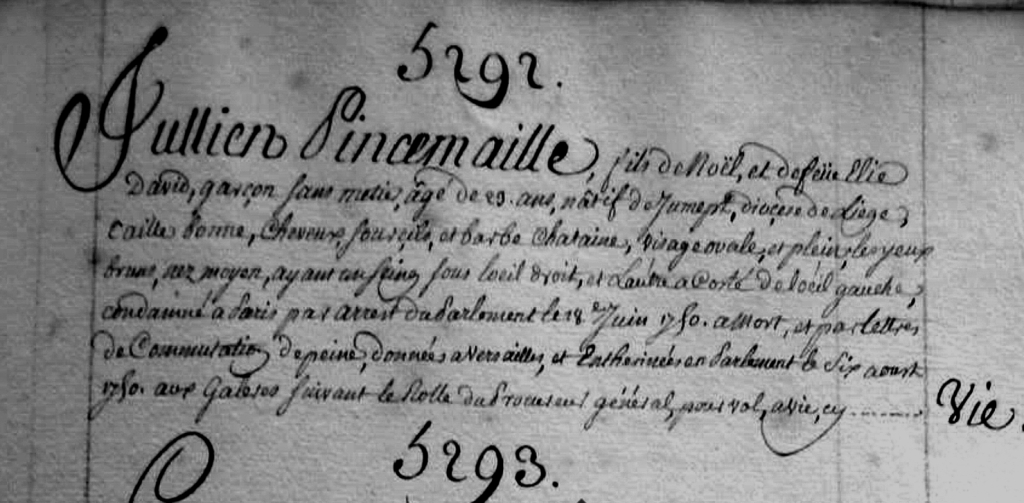 5292.
Jullien Pincemaille, fils de Noël, et de feüe Elie
David, garçon sans metié, âgé de 23. ans, nâtif de Jumept, dioçese de Liege,
taille bonne, cheveux, sourçils, et barbe chataine, visage ovale, et plein, les yeux
bruns, nez moyen, ayant un seing sous l'oeil droit, et l'autre a costé de l'oëil gauche,
condamné à Paris par arrest du Parlement le 18e Juin 1750. a Mort, et par lettres
de Commutation de peine, données a Versailles, et Entherinées en Parlement le Six aoust
1750. aux Galeres suivant le Rolle du Procureur général, pour vol, a vie, cy ........ Vie.
5293.